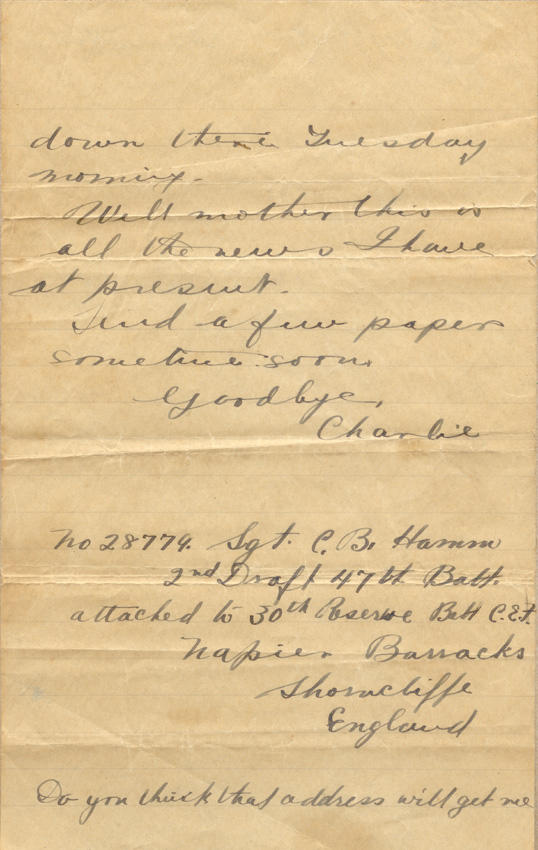 down there Tuesday
morning.
Well mother this is
all the news I have
at present.
Send a few papers
sometime soon.
Goodbye,
Charlie
No 28779. Sgt. C. B. Hamm
2nd Draft 47th Batt.
attached to 30th Reserve Batt C.E.F.
Napier Barracks
Shorncliffe
England
Do you think that address will get me